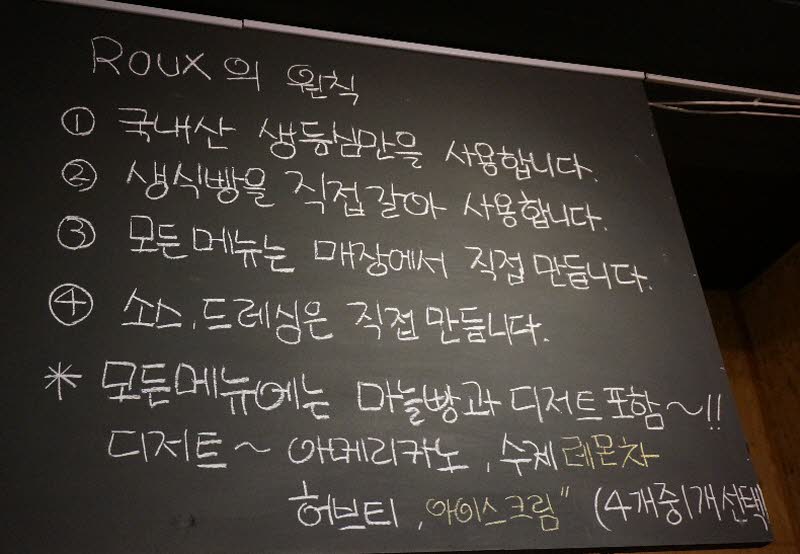 Roux의 원칙
① 국내산 생등심만을 사용합니다.
② 생식빵을 직접갈아 사용합니다.
③ 모든메뉴는 매장에서 직접 만듭니다.
④ 소스,드레싱은 직접 만듭니다.
* 모든메뉴에는 마늘빵과 디저트포함~!!
디저트~ 아메리카노, 수제레몬차
허브티, 아이스크림" (4개중1개선택